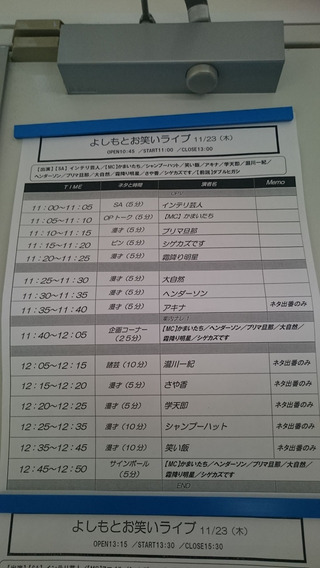 よしもとお笑いライブ 11/23 (木)
OPEN10:45 /START11:00 /CLOSE13:00
【出演】【SA】インテリ芸人/【MC】かまいたち/シャンプーハット/笑い飯/アキナ/学天即/温川一紀/
ヘンダーソン/プリマ旦那/大自然/霜降り明星/シゲカズです/さや香/【前説】ダブルヒガシ
TIME ネタと時間 演者名 Memo
11:00〜11:05 SA(5分) インテリ芸人
11:05〜11:10 OPトーク(5分) 【MC】かまいたち
11:10〜11:15 漫才(5分) プリマ旦那
11:15〜11:20 ピン(5分) シゲカズです
11:20〜11:25 漫才(5分) 霜降り明星
11:25〜11:30 漫才(5分) 大自然
11:30〜11:35 漫才(5分) ヘンダーソン
11:35〜11:40 漫才(5分) アキナ ネタ出番のみ
11:40〜12:05 企画コーナー(25分) 【MC】かまいたち/ヘンダーソン/プリマ旦那/大自然/
霜降り明星/シゲカズです
12:05〜12:15 (10分) 温川一紀 ネタ出番のみ
12:15〜12:20 漫才(5分) さや香 ネタ出番のみ
12:20〜12:25 漫才(5分) 学天即 ネタ出番のみ
12:25〜12:35 漫才(10分) シャンプーハット ネタ出番のみ
12:35〜12:45 漫才(10分) 笑い飯 ネタ出番のみ
12:45〜12:50 サインボール(5分) 【MC】かまいたち/ヘンダーソン/プリマ旦那/大自然/
霜降り明星/シゲカズです
END
よしもとお笑いライブ 11/23 (木)
OPEN13:15 /START13:30 /CLOSE15:30